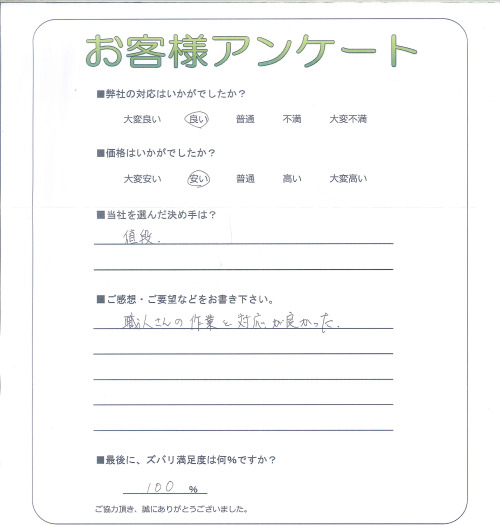 お客様アンケート
■弊社の対応はいかがでしたか？
大変良い 良い 普通 不満 大変不満
■価格はいかがでしたか？
大変安い 安い 普通 高い 大変高い
■当社を選んだ決め手は？
値段.
■ご感想・ご要望などをお書き下さい。
職人さんの作業と対応が良かった.
■最後に、ズバリ満足度は何%ですか？
100 %
ご協力頂き、誠にありがとうございました。